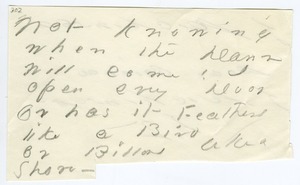 202
Not knowing
when the Dawn
will come, I
open every Door
Or has it Feathers
like a Bird
or Billows like a
Shore –